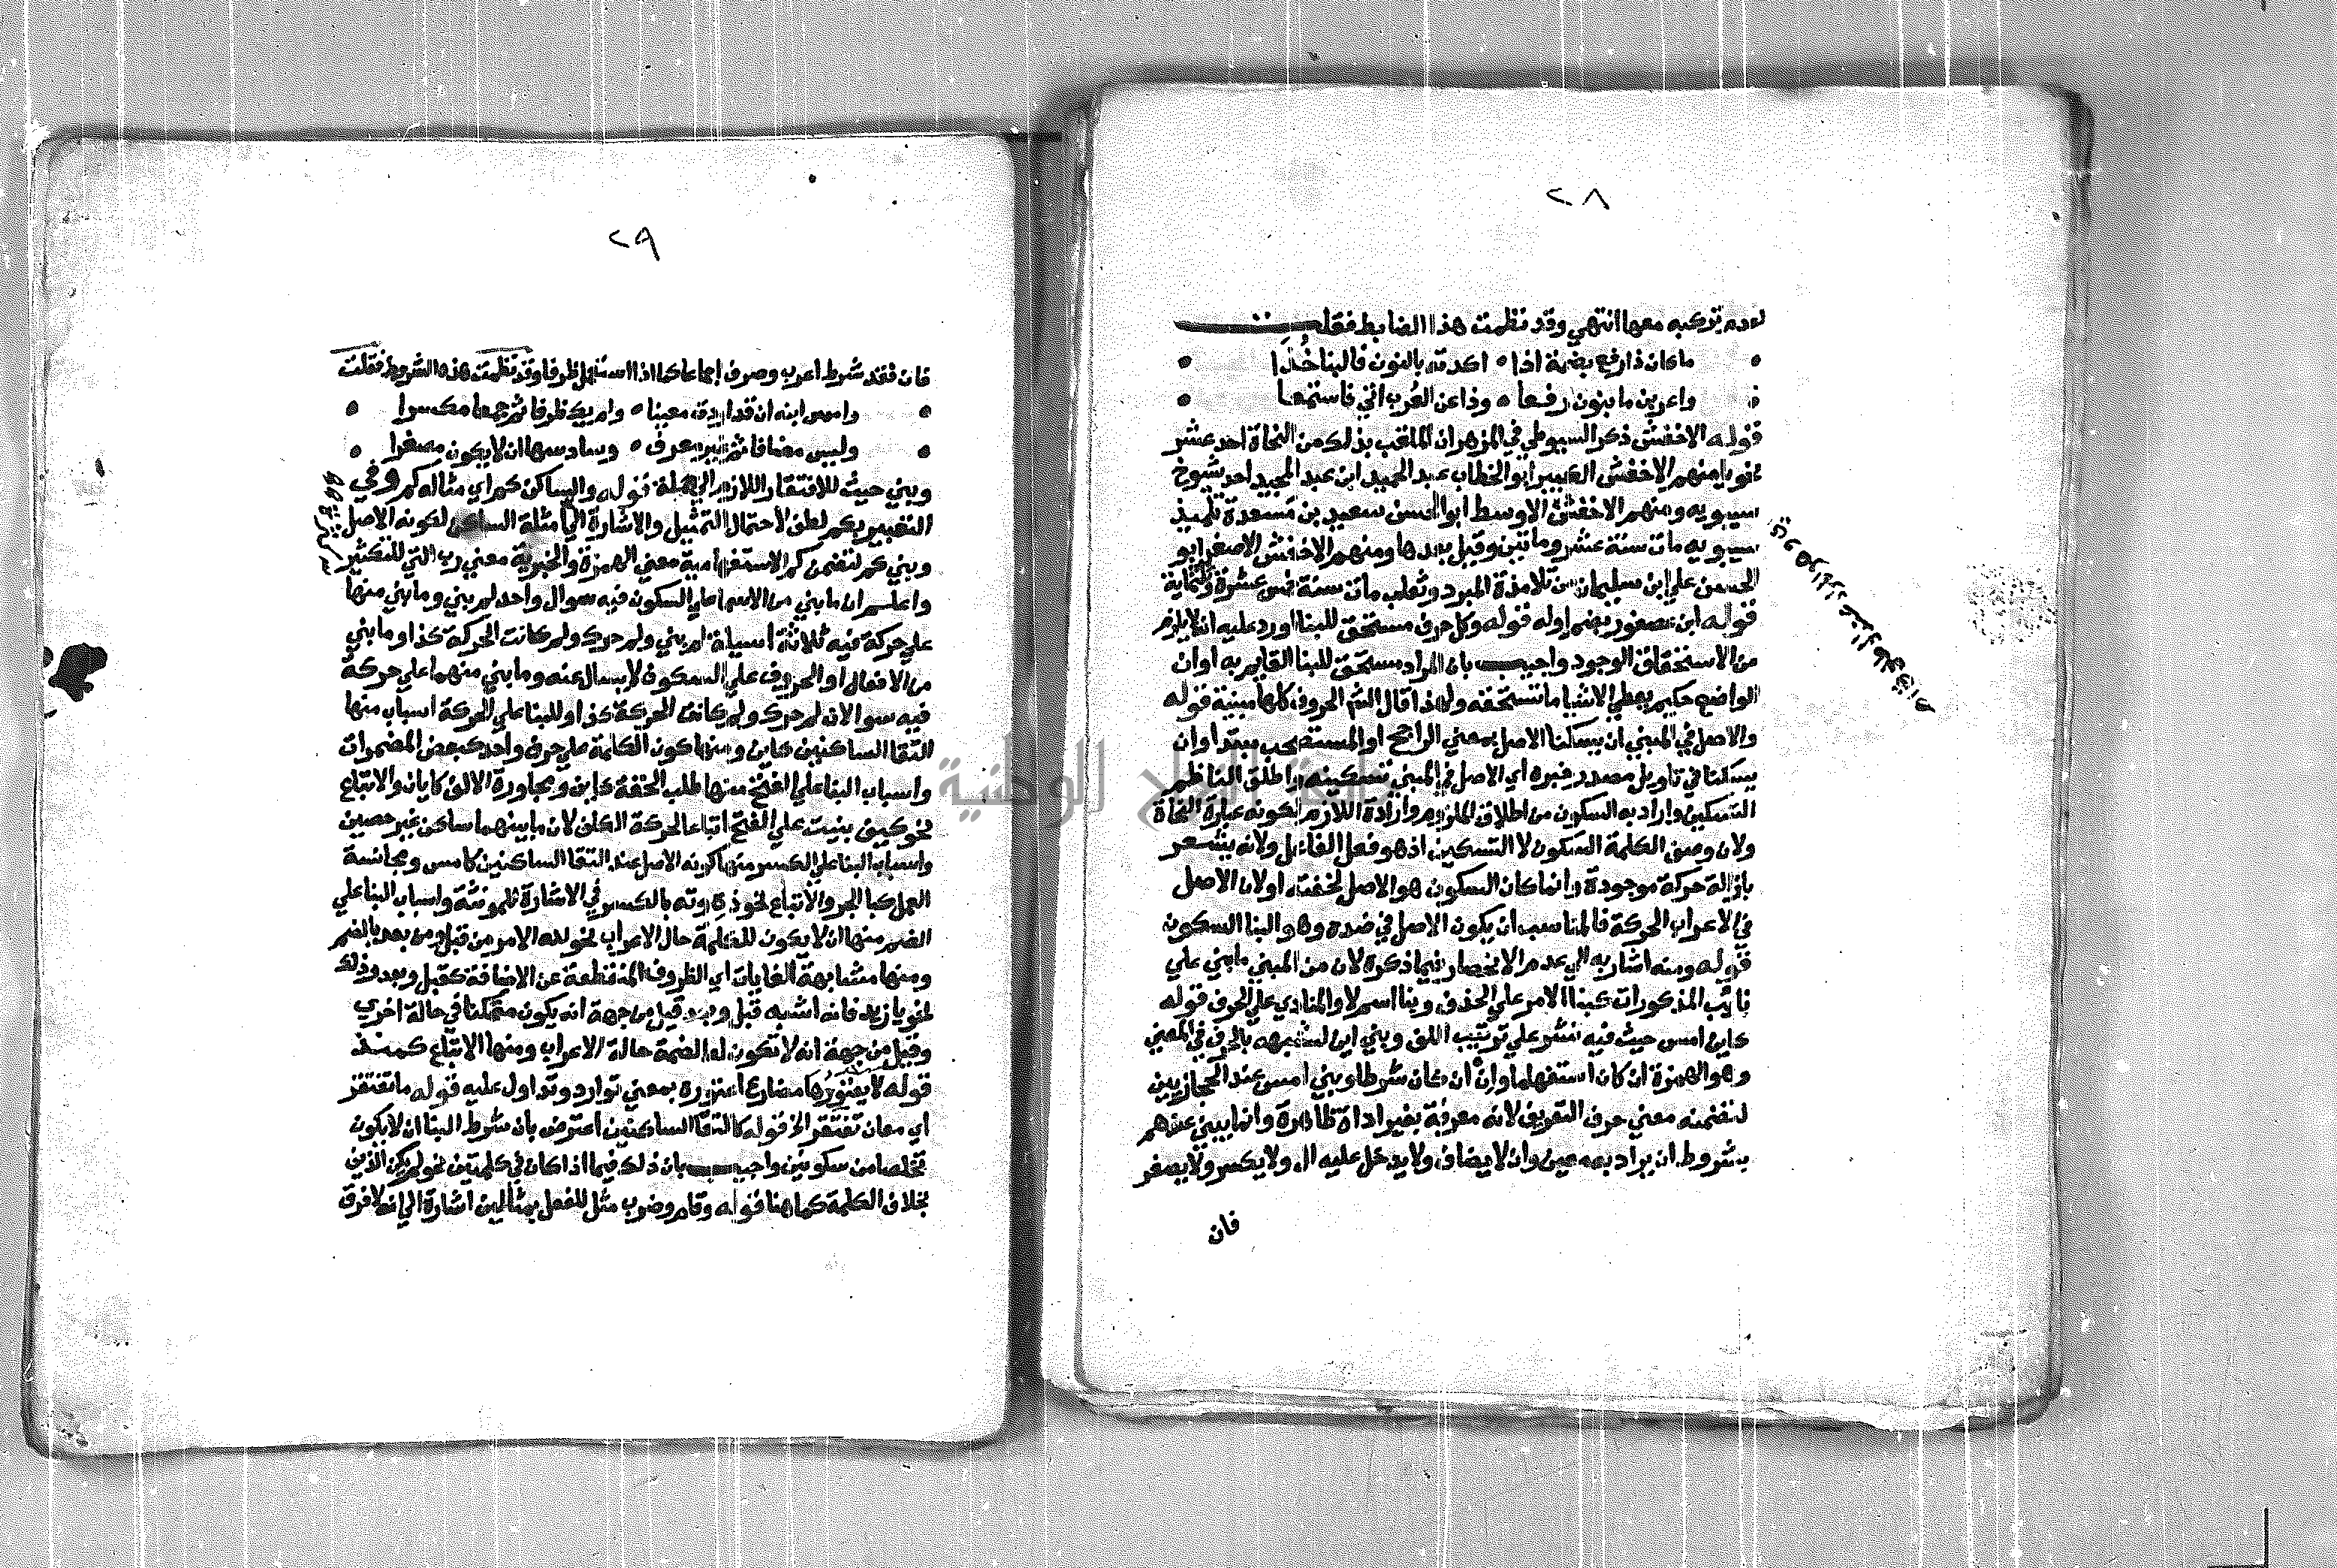 ٢٨
لعدم تركبه معها انتهي وقد نظمت هذا الضابط فقلت
ما كان ذا رفع بضمة اذا ٥ اكدته بالنون فالبنا خذا
واعربن ما بنون رفعا ٥ وذا عن العرب اتي فاستمعا
قوله الاخفش ذكر السيوطي في المزهر ان الملقب بذلك من النحاة احد عشر
نحويا منهم الاخفش الكبير ابو الخطاب عبد الحميد ابن عبد المجيد احد شيوخ
سيبويه ومنهم الاخفش الاوسط ابو الحسن سعيد بن مسعدة تلميذ
سيبويه مات سنة عشر وماتين وقيل بعدها ومنهم الاخفش الاصغر ابو
الحسن علي ابن سليمان من تلامذة المبرد وثعلب مات سنة خمس عشرة وثلثماية
قوله ابن عصفور بضم اوله قوله وكل حرف مستحق للبنا اورد عليه انه لا يلزم
من الاستحقاق الوجود واجيب بان المراد مستحق للبنا القايم به او ان
الواضع حكيم يعطي الاشيا ما تستحقه ولهذا قال الشم الحروف كلها مبنية قوله
والاصل في المبني ان يسكنا الاصل بمعني الراجح او المستصحب مبتدا وان
يسكنا في تاويل مصدر خبره اي الاصل في المبني تسكينه واطلق الناظم
التسكين واراد به السكون من اطلاق الملزوم وارادة اللازم لكونه عبارة النحاة
ولان وصف الكلمة السكون لا التسكين اذ هو فعل الفاعل ولانه يشعر
بازالة حركة موجودة وانما كان السكون هو الاصل لخفته او لان الاصل
في الاعراب الحركة فالمناسب ان يكون الاصل في ضده وهو البنا السكون
قوله ومنه اشار به الي عدم الانحصار فيما ذكره لان من المبني ما بني علي
نايب المذكورات كبنا الامر علي الحذف وبنا اسم لا والمنادي علي الحرف قوله
كاين امس حيث فيه نشر علي ترتيب اللف وبني اين لشبهه بالحرف في المعني
وهو الهمزة ان كان استفهاما وان ان كان شرطا وبني امس عند الحجازيين
لتضمنه معني حرف التعريف لانه معرفة بغير اداة ظاهرة وانما يبني عندهم
بشروط ان يراد به معين وان لا يضاف ولا يدخل عليه ال ولا يكسر ولا يصغر
فان
٢٩
فان فقد شرط اعرب وصرف اجماعا كما اذا استعمل ظرفا وقد نظمت هذه الشروط فقلت
وامس ابنه ان قد اردت معينا ٥ ولم يك ظرفا ثم جمعا مكسرا
وليس مضافا ثم غير معرف ٥ وسادسها ان لا يكون مصغرا
وبني حيث للافتقار اللازم الي جملة قوله والساكن كم اي مثاله كم وفي
التعبير بكم لطف لاحتمال التمثيل والاشارة الي امثلة الساكن لكونه الاصل
وبني كم لتضمن كم الاستفهامية معني الهمزة والخبرية معني رب التي للتكثير
واعلم ان ما بني من الاسما علي السكون فيه سوال واحد لم بني وما بني منها
علي حركة فيه ثلاثة اسيلة لم بني ولم حرك ولم كانت الحركة كذا وما بني
من الافعال او الحروف علي السكون لا يسال عنه وما بني منهما علي حركة
فيه سوالان لم حرك ولم كانت الحركة كذا وللبنا علي الحركة اسباب منها
التقا الساكنين كاين ومنها كون الكلمة علي حرف واحد كبعض المضمرات
واسباب البنا علي الفتح منها طلب الخفة كاين ومجاورة الالف كايان والاتباع
نحو كيف بنيت علي الفتح اتباعا لحركة الكاف لان ما بينهما ساكن غير حصين
واسباب البنا علي الكسر منها كونه الاصل عند التقا الساكنين كامس ومجانسة
العمل كبا الجر والاتباع نحو ذه وته بالكسر في الاشارة للمونثة واسباب البنا علي
الضم منها ان لا يكون للكلمة حال الاعراب نحو لله الامر من قبل ومن بعد بالضم
ومنها مشابهة الغايات اي الظروف المنقطعة عن الاضافة كقبل وبعد وذلك
نحو يا زيد فانه اشبه قبل وبعد قيل من جهة انه يكون متمكنا في حالة اخري
وقيل من جهة انه لا تكون له الضمة حالة الاعراب ومنها الاتباع كمنذ
قوله لا يعتورها مضارع اعتوره بمعني توارد وتداول عليه قوله ما تفتقر
اي معان تفتقر الخ قوله كالتقا الساكنين اعترض بان شرط البنا ان لا يكون
تخلصا من سكونين واجيب بان ذلك فيما اذا كان في كلمتين نحو لم يكن الذين
بخلاف الكلمة كما هنا قوله وقام وضرب مثل للفعل بمثالين اشارة الي انه لا فرق